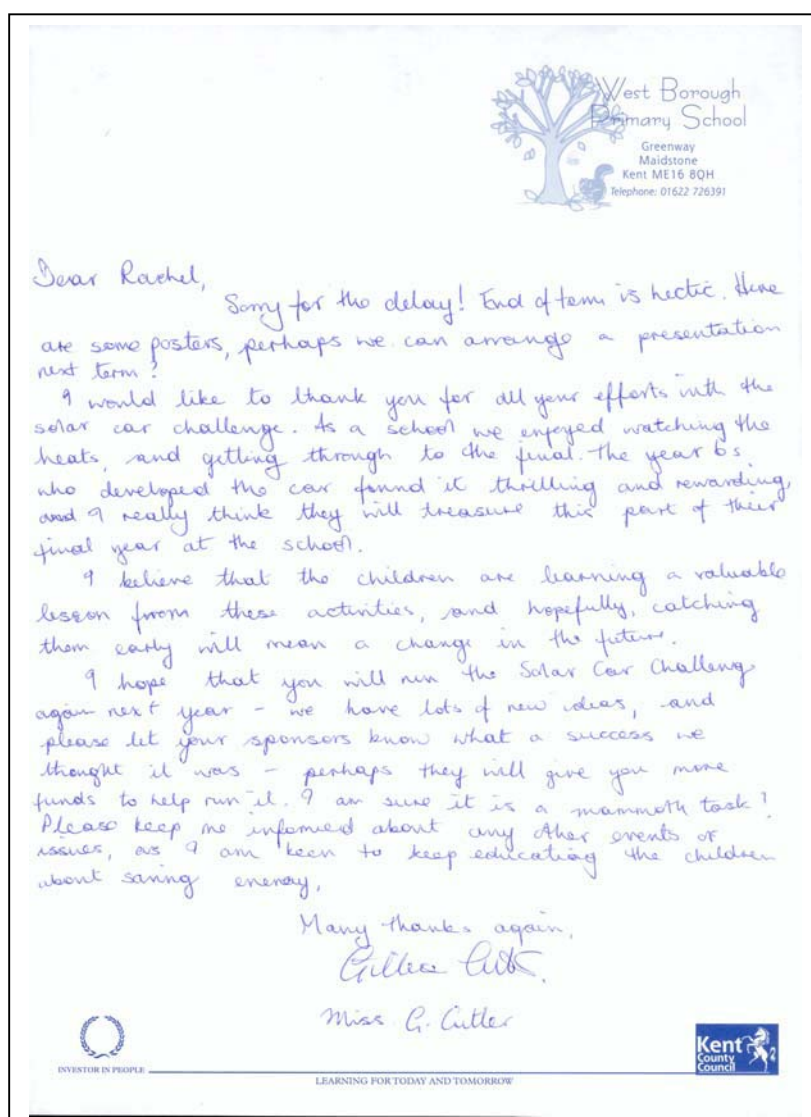 West Borough
Primary School
Greenway
Maidstone
Kent ME16 8QH
Telephone: 01622 726391
Dear Rachel,
Sorry for the delay! End of term is hectic. Here
are some posters, perhaps we can arrange a presentation
next term?
I would like to thank you for all your efforts with the
solar car challenge. As a school we enjoyed watching the
heats, and getting through to the final. The year 6s
who developed the car found it thrilling and rewarding,
and I really think they will treasure this part of their
final year at the school.
I believe that the children are learning a valuable
lesson from these activities, and hopefully, catching
them early will mean a change in the future.
I hope that you will run the Solar Car Challeng
again next year - we have lots of new ideas, and
please let your sponsors know what a success we
thought it was - perhaps they will give you more
funds to help run it. I am sure it is a mammoth task!
Please keep me informed about any other events or
issues, as I am keen to keep educating the children
about saving energy.
Many thanks again,
Miss. G. Cutler
INVESTOR IN PEOPLE
Kent
County
Council
LEARNING FOR TODAY AND TOMORROW